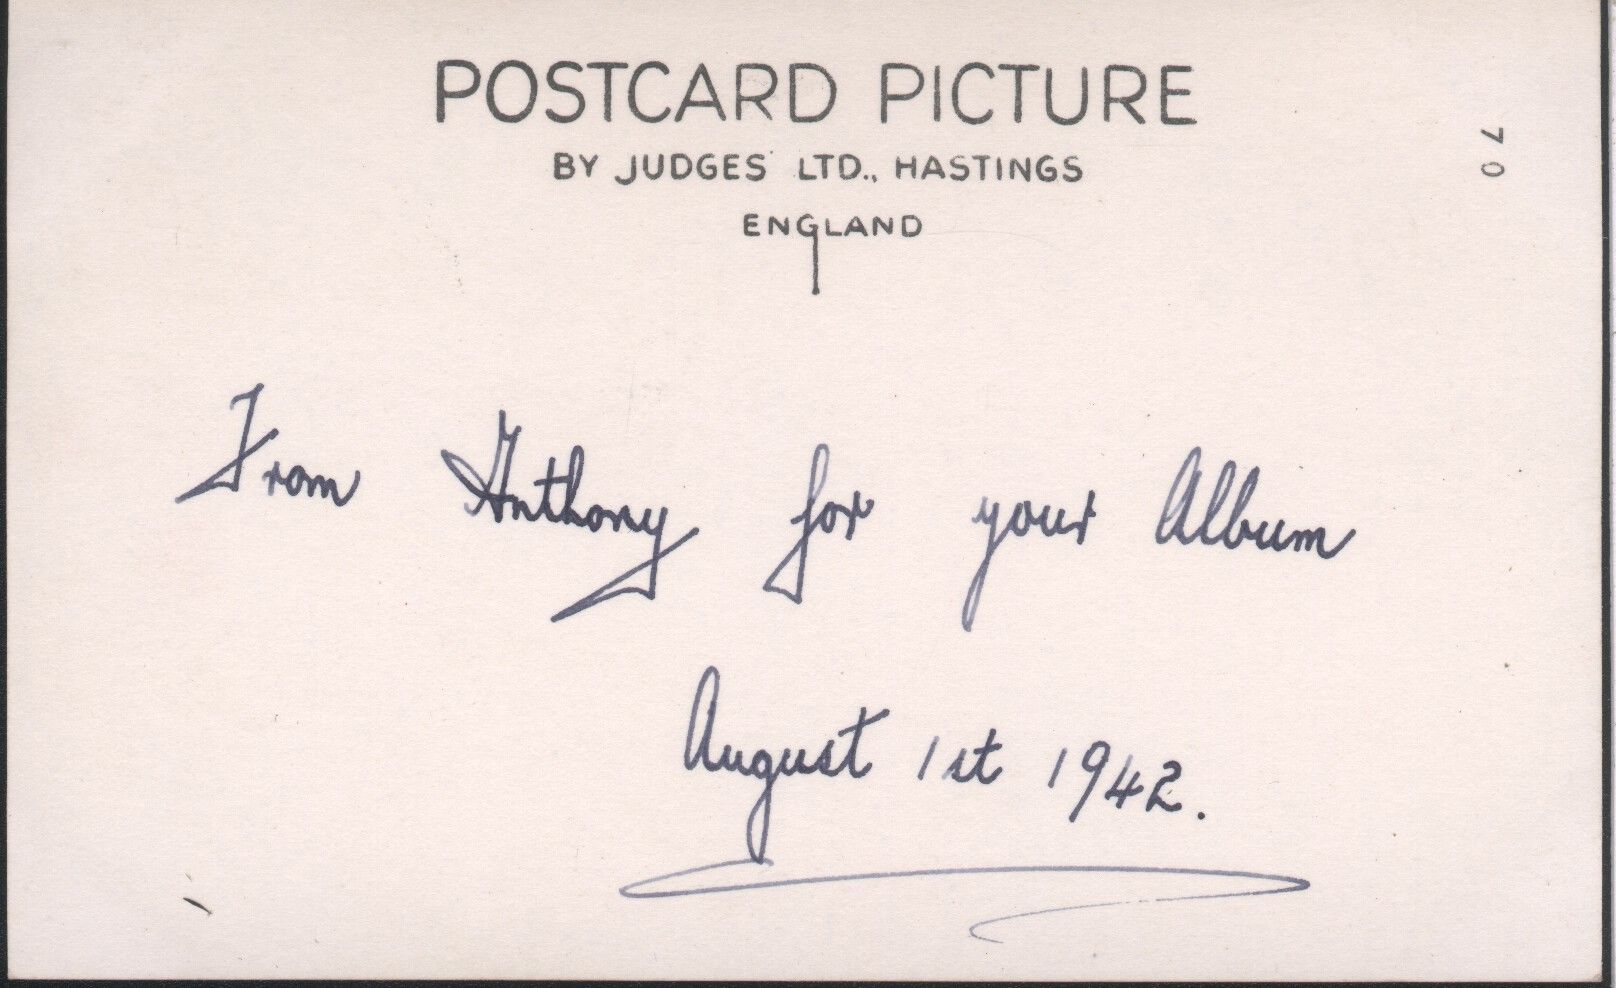 POSTCARD PICTURE
BY JUDGES LTD., HASTINGS
ENGLAND
70
From Anthony for your Album
August 1st 1942.